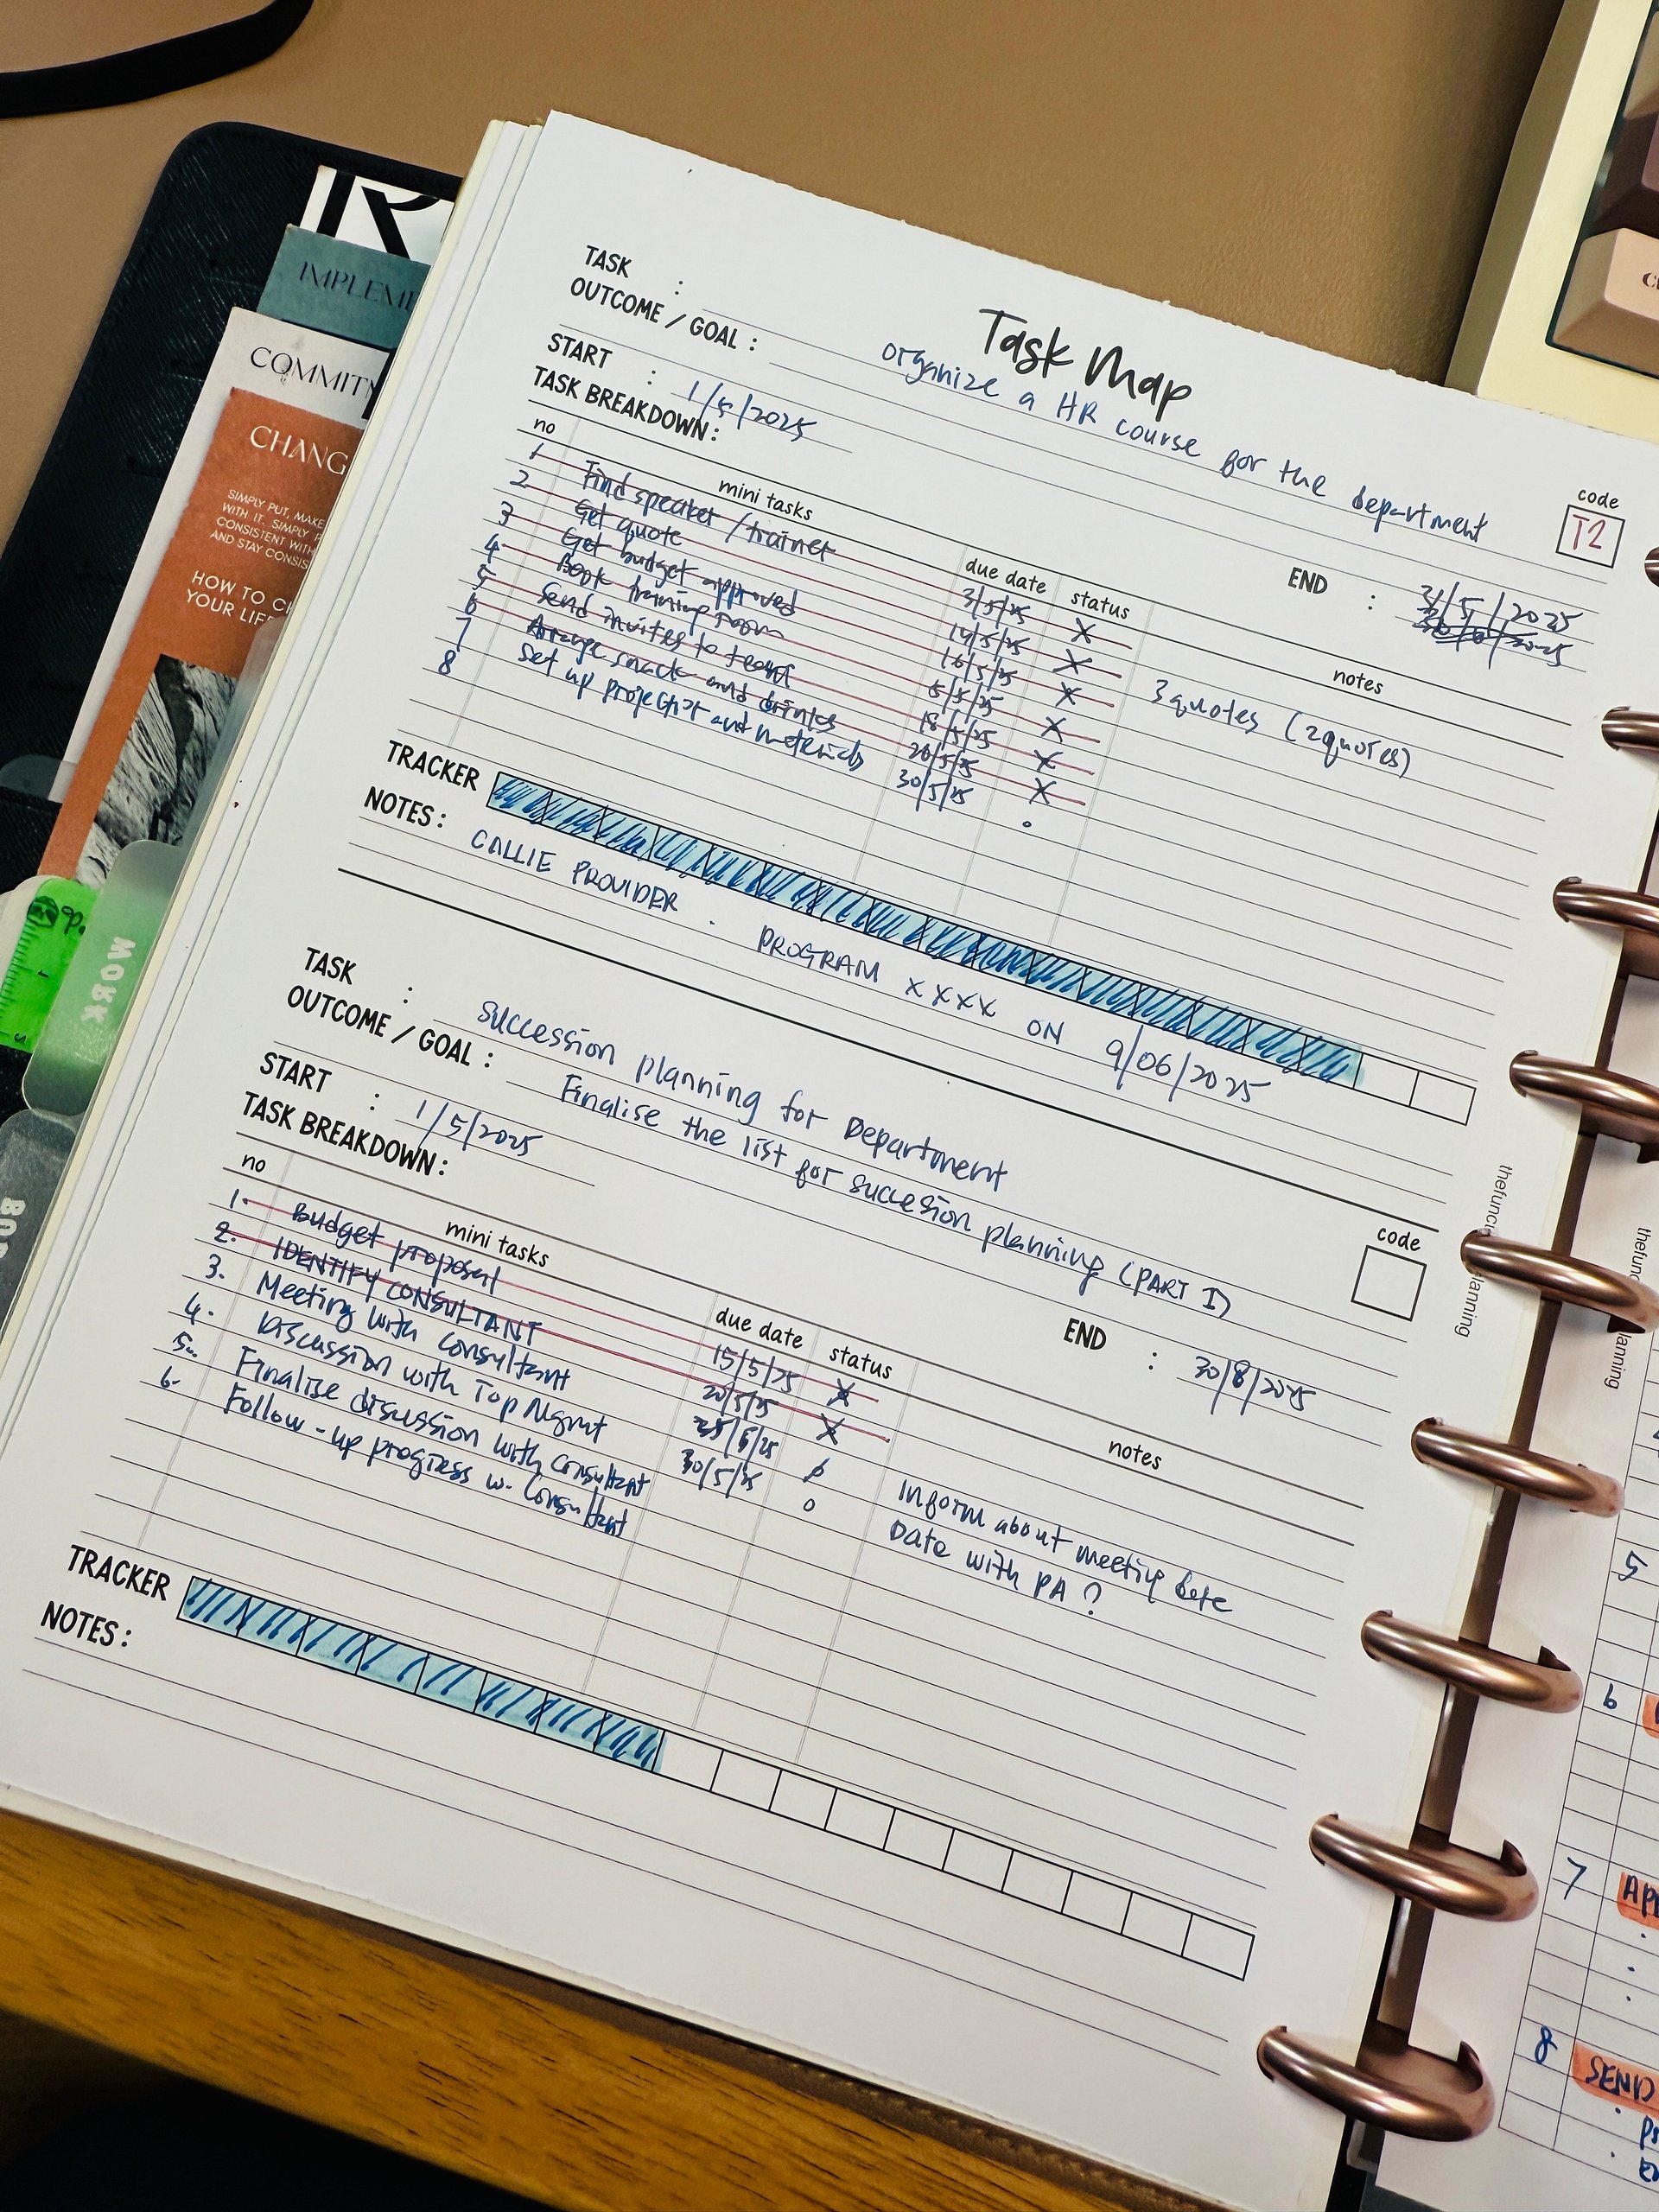 Task Map
TASK :
organize a HR course for the department
OUTCOME / GOAL :
code
T2
START : 1/5/2025
END : 31/5/2025
TASK BREAKDOWN :
no mini tasks due date status notes
1 Find speaker / trainer 3/5/25 X
2 Get quote 14/5/25 X 3 quotes (2 quotes)
3 Get budget approved 16/5/25 X
4 Book training room 5/5/25 X
5 Send invites to team 18/5/25 X
6 Arrange snack and drinks 20/5/25 X
7 Set up projector and materials 30/5/25 .
8
TRACKER
NOTES : CALLIE PROVIDER . PROGRAM XXXX ON 9/06/2025
TASK : succession planning for Department
OUTCOME / GOAL : Finalise the list for succesion planning (PART I)
code
START : 1/5/2025
END : 30/8/2025
TASK BREAKDOWN :
no mini tasks due date status notes
1. Budget proposal 15/5/25 X
2. IDENTIFY CONSULTANT 20/5/25 X
3. Meeting with consultant /5/25
4. Discussion with Top Mgmt 30/5/25 o Inform about meeting
5. Finalise discussion with consultant Date with PA ?
6. Follow-up progress w. Consultant
TRACKER
NOTES :
IMPLEME
COMMIT
CHANG
SIMPLY PUT, MAKE
WITH IT. SIMPLY
CONSISTENT WITH
AND STAY CONSIS
HOW TO C
YOUR LIFE
WORK
thefunc
lanning
thefunc
lanning
5
6
7
8 SEND